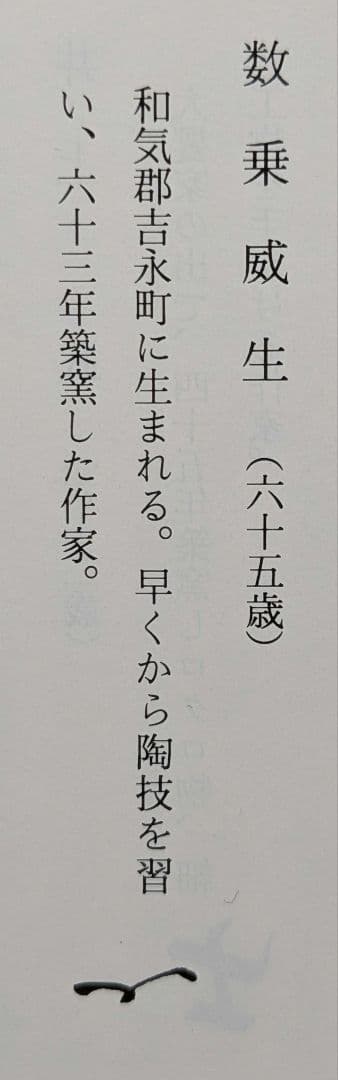 数乗威生（六十五歳）
和気郡吉永町に生まれる。早くから陶技を習
い、六十三年築窯した作家。